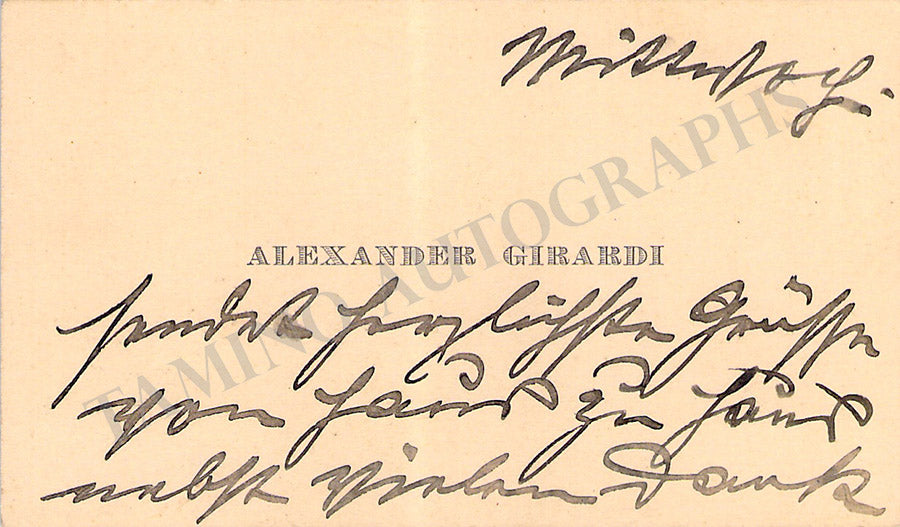 Mittwoch.
ALEXANDER GIRARDI
TAMINO AUTOGRAPHS
sendet herzlichste Grüsse
von Haus zu Haus
nebst vielen Dank